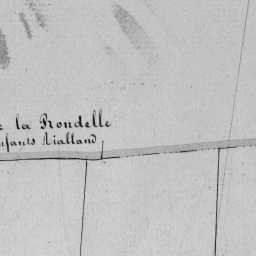 la Rondelle
nfants Rialland